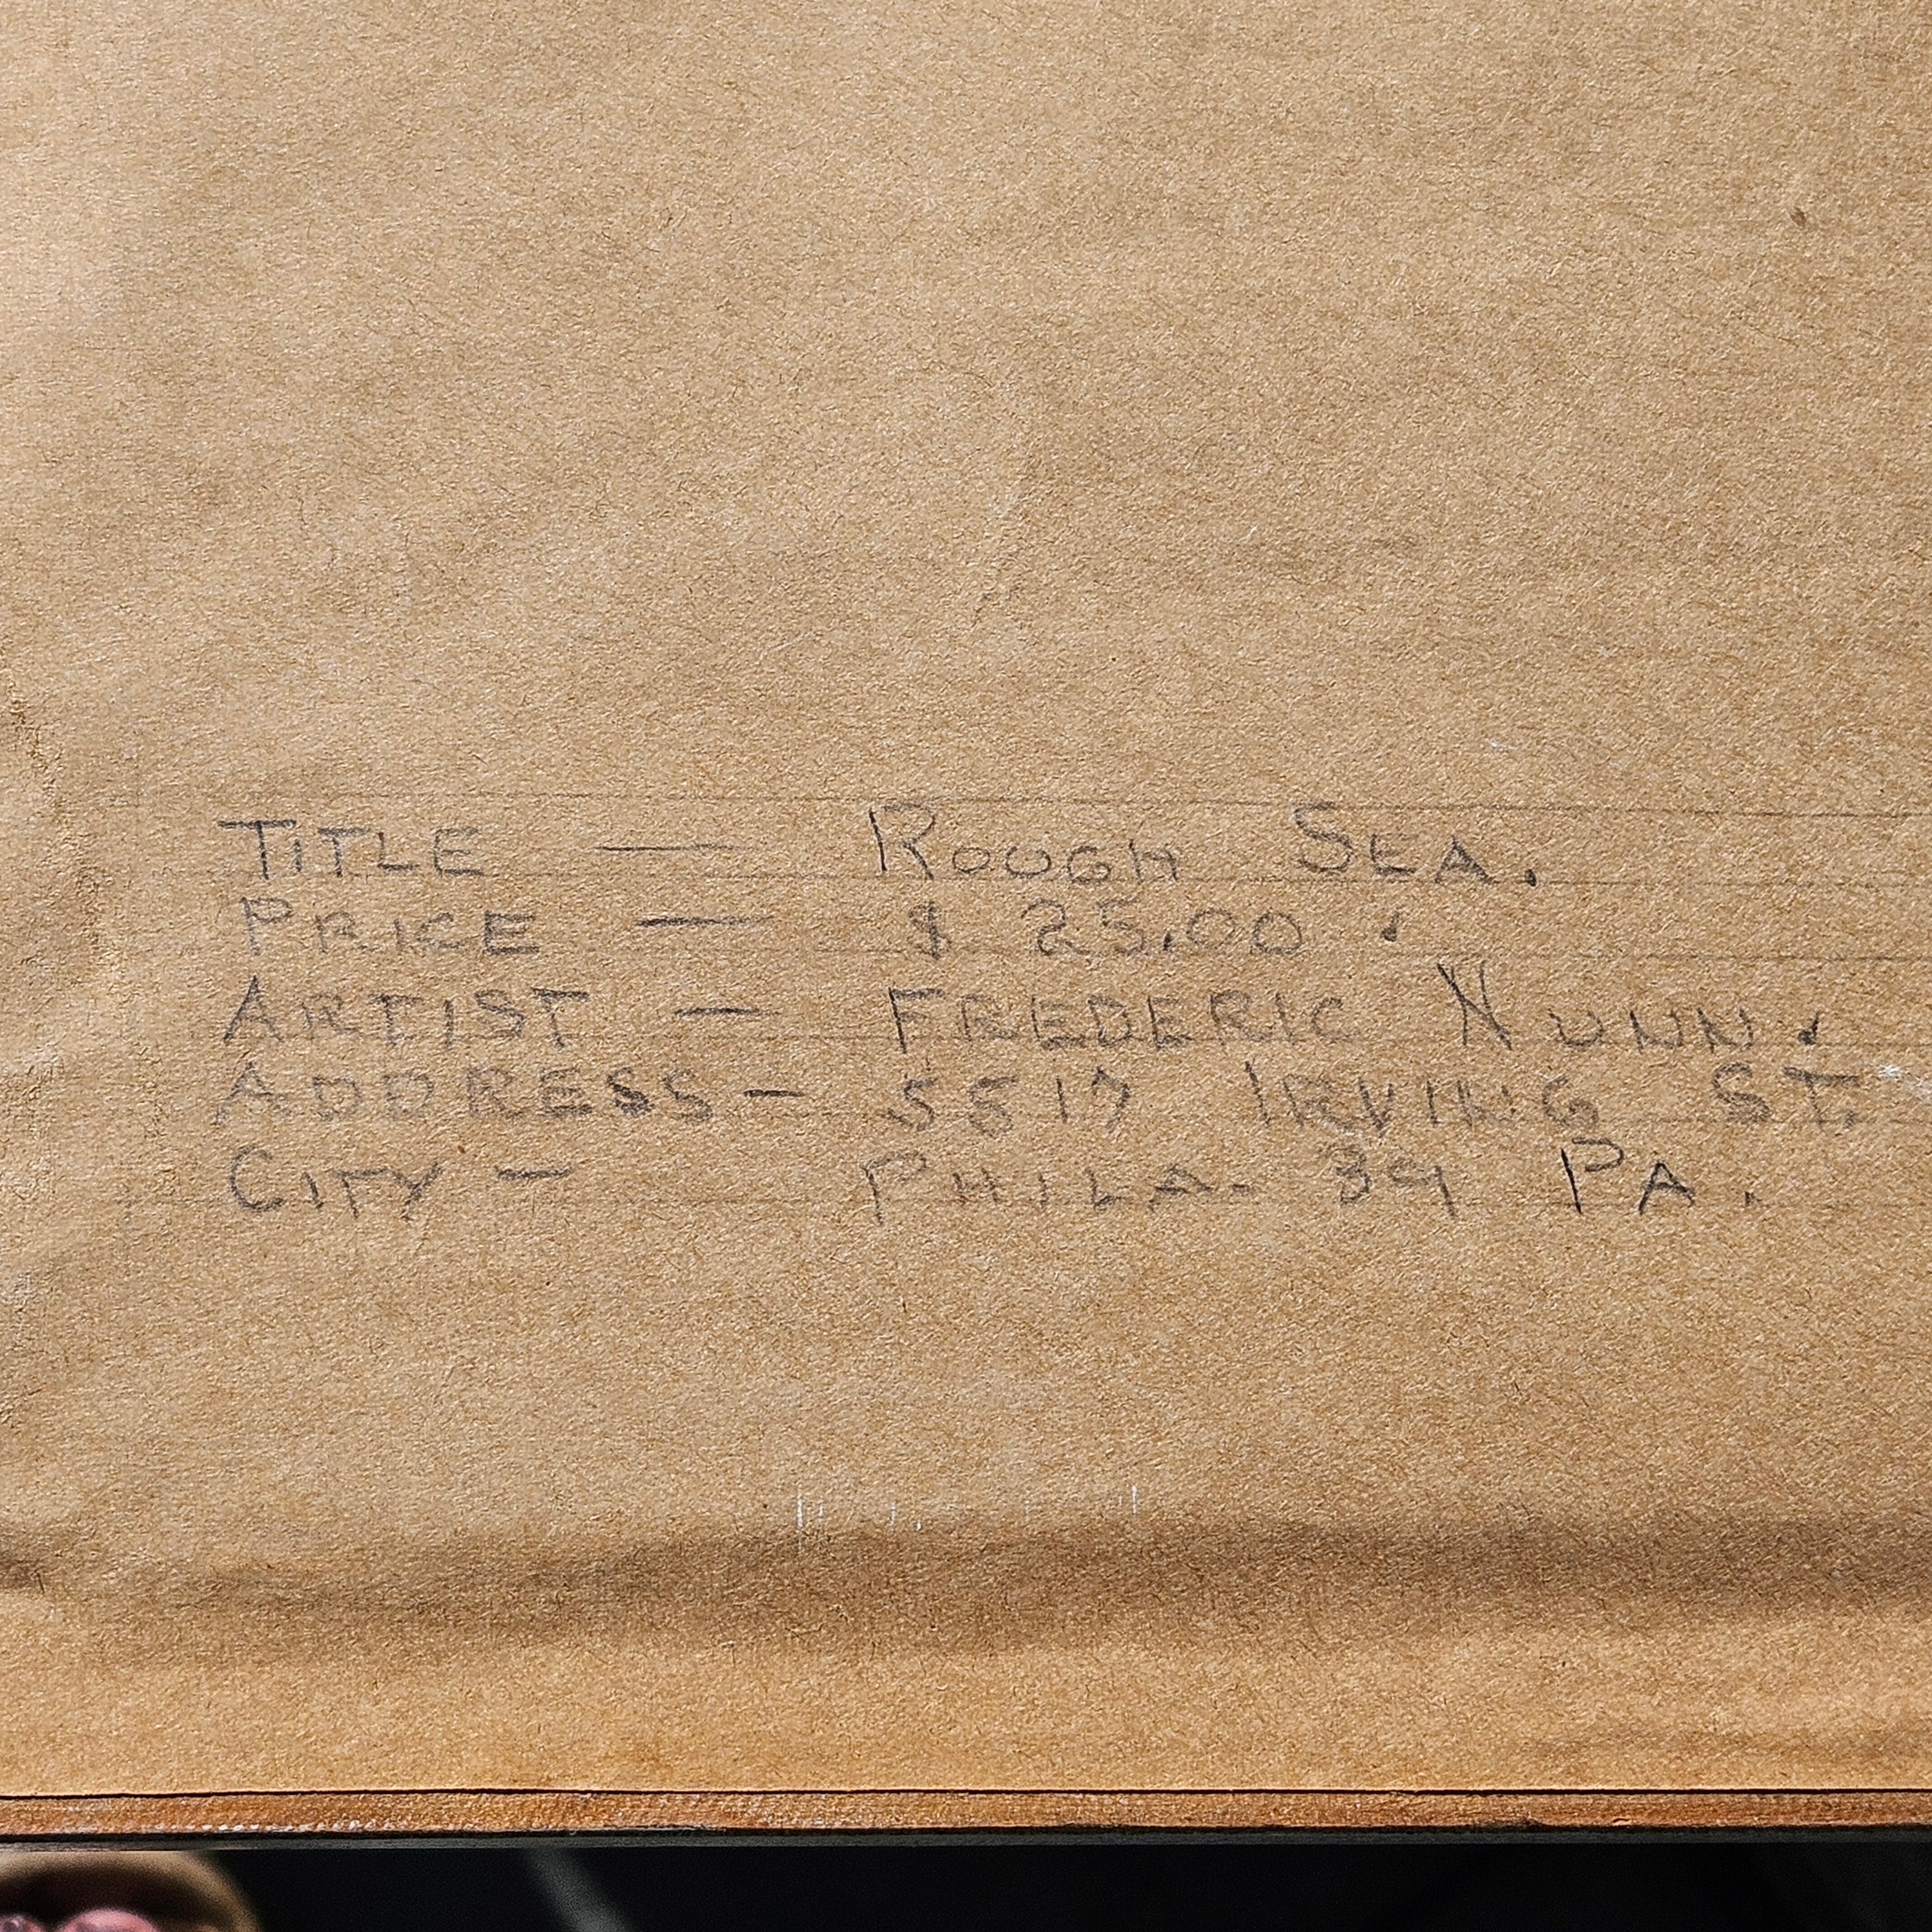 TITLE — ROUGH SEA.
PRICE — $ 25.00.
ARTIST — FREDERIC NUNN.
ADDRESS - 5517 IRVING ST.
CITY - PHILA- 39 PA.